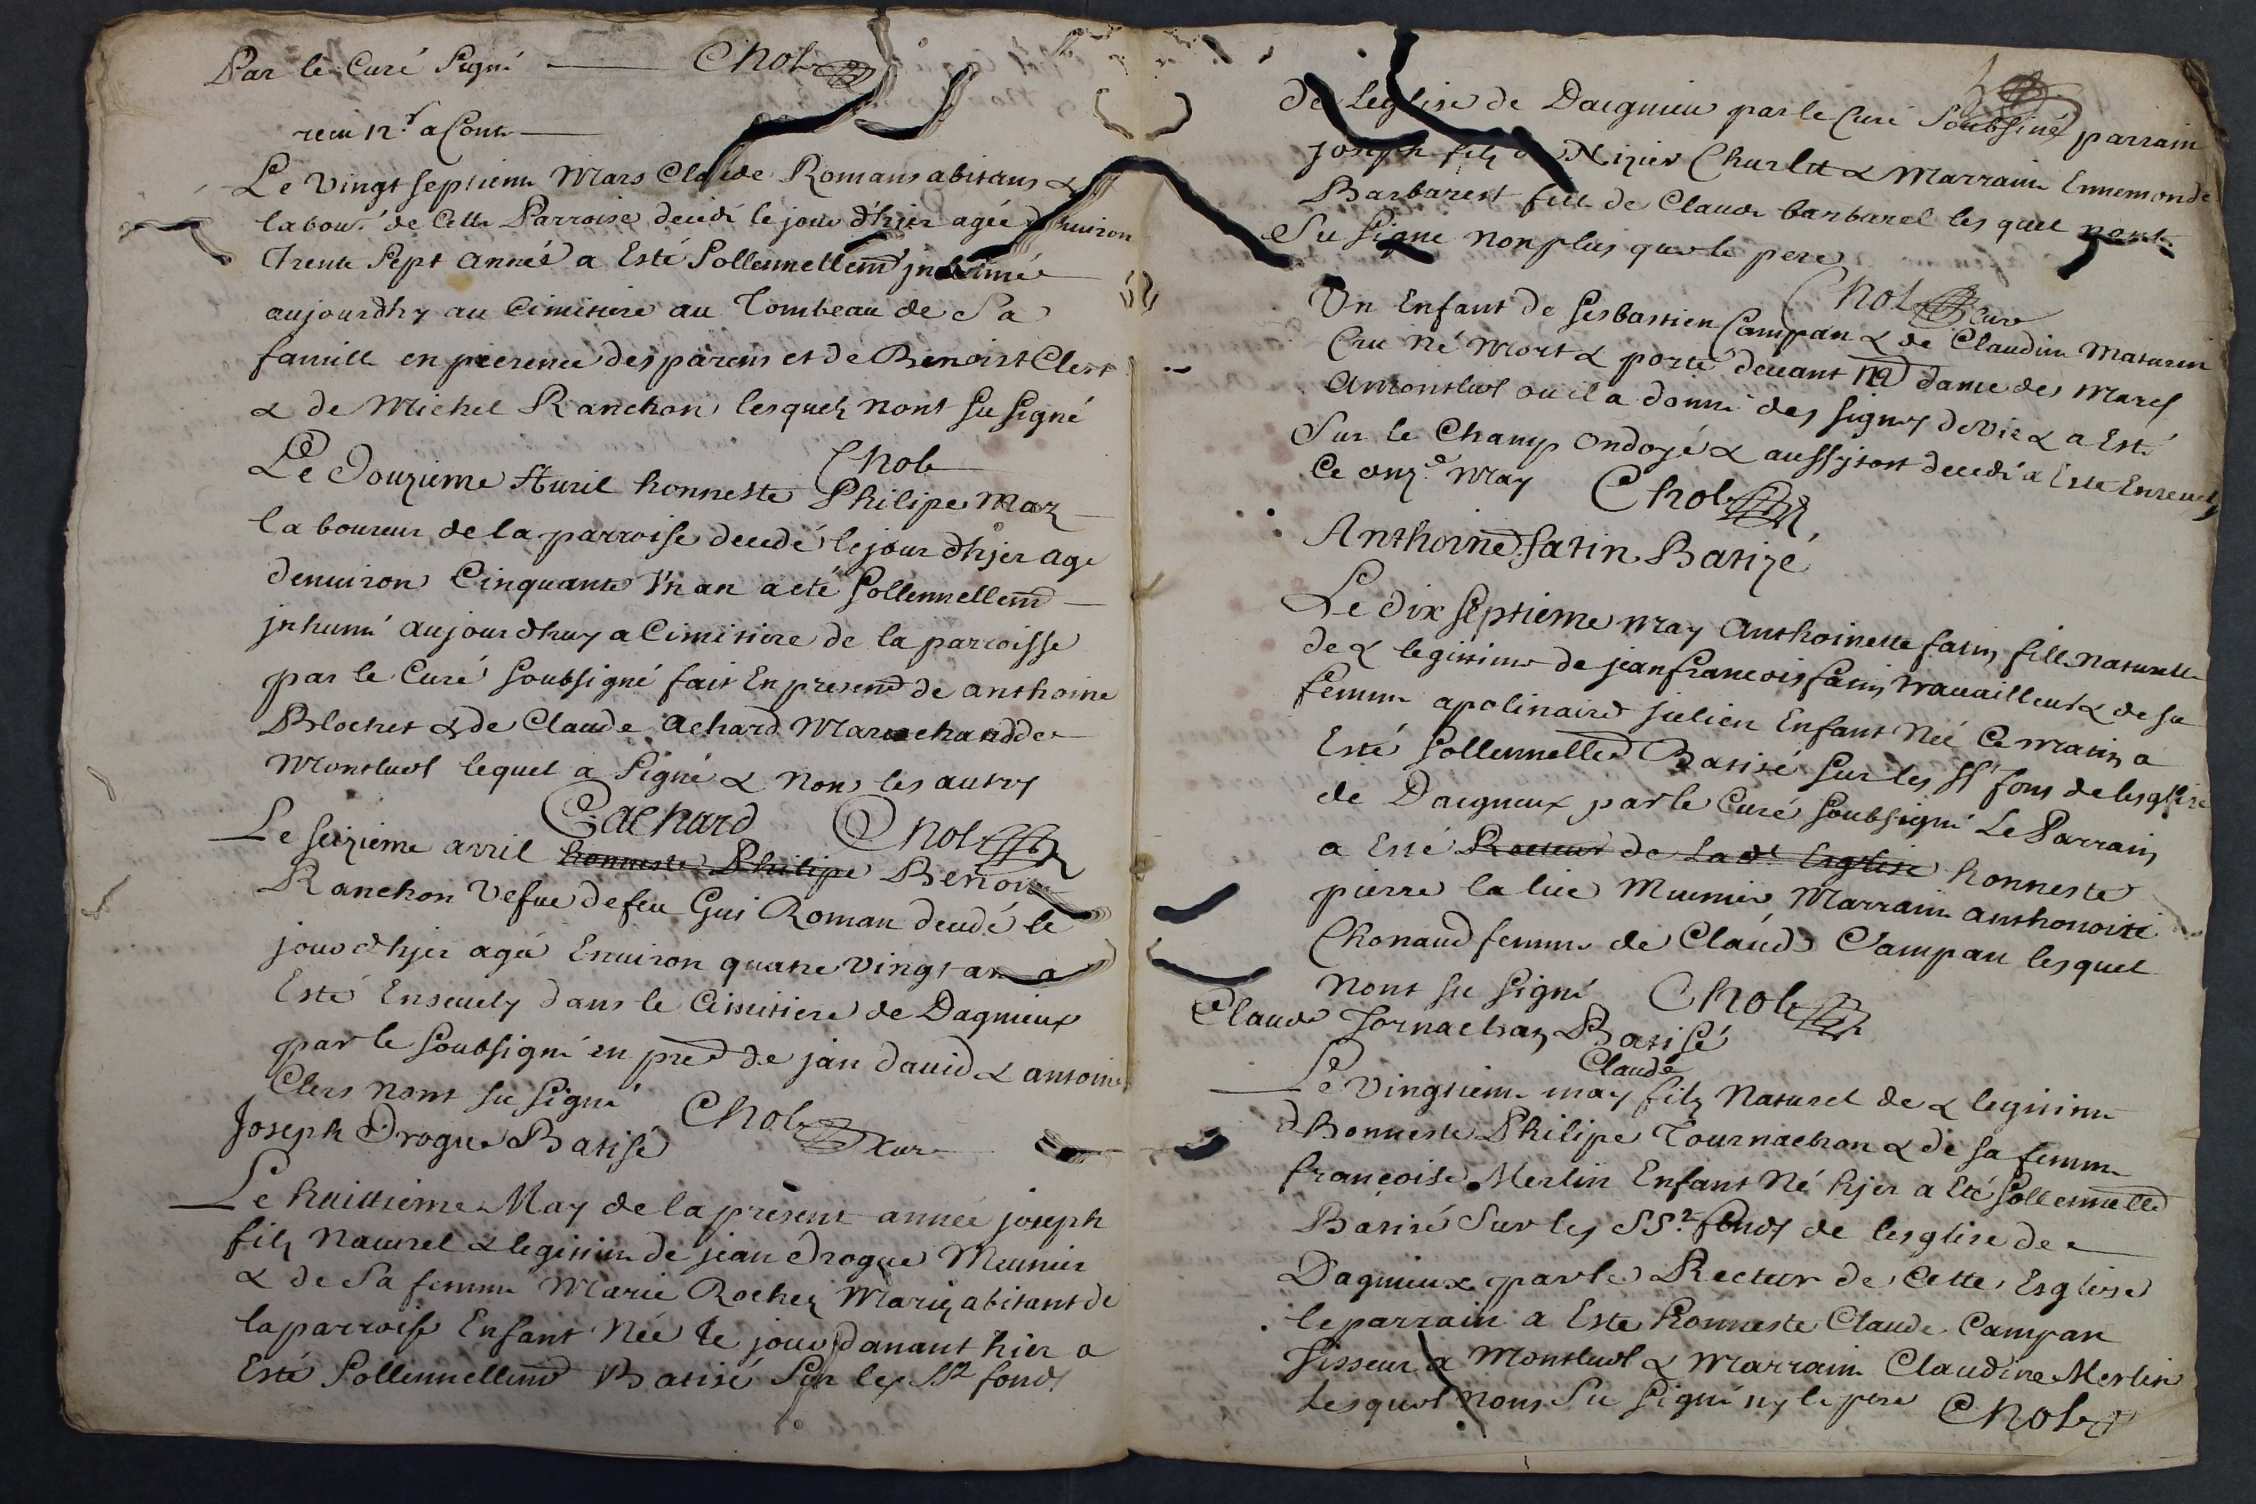 Par le Curé signé Chol
receu 12 s a Conte
Le vingt septiem mars Claude Romans abitans &
labour. de Cette Parroise decedé le jour d'hier agée denuiron
Trente sept année a Esté sollennellem̄ jnhumé
aujourdhy au Cimitiere au Tombeau de Sa
famille en pierence des parens et de Benoist Clert
& de Michel Ranchon lesquelz nont su signé
Chol
Le Douzieme Auril honneste Philipe Maz
laboureur de la parroisse decedé le jour dhjer age
denuiron Cinquante Vn an a eté sollennellem̄
jnhumé aujourdhuy a Cimitiere de la parroisse
par le Curé soubsigné fait En presenc̄ de anthoine
Blochet & de Claude achard Marechand de
Montluel lequel a signé & non les autres
C. achard Chol
Le seizieme avril honneste Philipe Benoite
Ranchon vefue de feu Gui Roman decedé le
jour dhjer agée Enuiron quatre vingt an a
Esté Enseuely dans le Cimitiere de Dagnieux
par le soubsigné en pre͞ de jan dauid & antoine
Clers nont su signé Chol Cure
Joseph Drogue Batisé
Le huittieme May de la present année joseph
filz naturel & legitim de jean Drogue Meunier
& de Sa femme Marie Rochez Mariez abitant de
la parroise Enfant Née le jour dauant hier a
Esté sollennellem̄ Batisé Sur les SS fonds
de Leglise de Daignieu par le Curé soubsiné parrain
joseph filz de Nizier Churlet & Marraine Ennemonde
Barbarest fille de Claude barbarel les quel nont
Su signe non plus que le pere
Chol Cure
Un Enfant de Sesbastien Campan & de Claudine Maturin
Cru Né mort & porté deuant N͞ dame des Mares
a montluel ou il a donné des signes de vie & a Esté
Sur le Champ ondoyé & aussytost decedé a Esté Enseuely
Ce onze may Chol
Anthoine fatin Batizé
Le dix septieme may anthoinette fatin fille naturelle
de & legitime de jean francois fatin trauailleur & de sa
femme apolinaire julien Enfant Née Ce matin a
Esté sollennelle͞ Batisé sur les SS fons de lesglise
de Daigneux par le Curé soubsigné Le Parrain
a Esté Recteur de la de Esglise honneste
pierre la lice Munier Marraine anthonoite
Chonaud femme de Claude Campan lesquel
nont su signé Chol
Claude Tornachon Batisé
Claude
Le vingtiem may filz naturel de & legitime
dhonneste Philipe Tournachon & de sa femme
françoise Merlin Enfant Né hjer a Eté sollennelle͞
Batisé Sur les SS. fonds de lesglise de
Dagnieux par le Recteur de Cette Esglise
le parrain a Este honneste Claude Campan
Tisseur a Montluel & marraine Claudine Merlin
Lesquel nons su signé ny le pere Chol